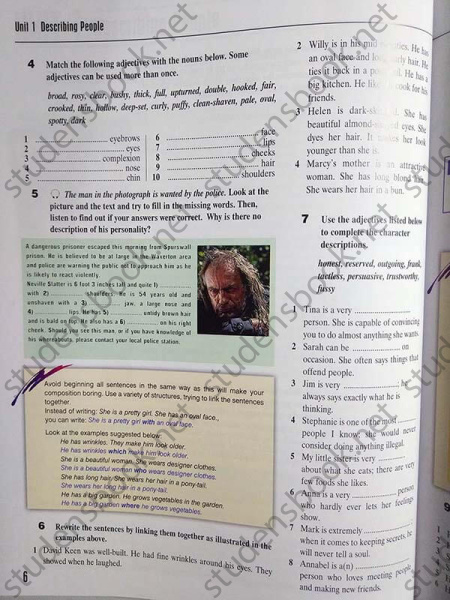 Unit 1 Describing People
4 Match the following adjectives with the nouns below. Some
adjectives can be used more than once.
broad, rosy, clear, bushy, thick, full, upturned, double, hooked, fair,
crooked, thin, hollow, deep-set, curly, puffy, clean-shaven, pale, oval,
spotty, dark
1 eyebrows
2 eyes
3 complexion
4 nose
5 chin
6 face
7 lips
8 cheeks
9 hair
10 shoulders
5 The man in the photograph is wanted by the police. Look at the
picture and the text and try to fill in the missing words. Then,
listen to find out if your answers were correct. Why is there no
description of his personality?
A dangerous prisoner escaped this morning from Spurswall
prison. He is believed to be at large in the Waverton area
and police are warning the public not to approach him as he
is likely to react violently.
Neville Statter is 6 foot 3 inches tall and quite 1)
with 2) shoulders. He is 54 years old and
unshaven with a 3) jaw, a large nose and
4) lips. He has 5) untidy brown hair
and is bald on top. He also has a 6) on his right
cheek. Should you see this man, or if you have knowledge of
his whereabouts, please contact your local police station.
Avoid beginning all sentences in the same way as this will make your
composition boring. Use a variety of structures, trying to link the sentences
together.
Instead of writing: She is a pretty girl. She has an oval face.,
you can write: She is a pretty girl with an oval face.
Look at the examples suggested below:
He has wrinkles. They make him look older.
He has wrinkles which make him look older.
She is a beautiful woman. She wears designer clothes.
She is a beautiful woman who wears designer clothes.
She has long hair. She wears her hair in a pony-tail.
She wears her long hair in a pony-tail.
He has a big garden. He grows vegetables in the garden.
He has a big garden where he grows vegetables.
6 Rewrite the sentences by linking them together as illustrated in the
examples above.
1 David Keen was well-built. He had fine wrinkles around his eyes. They
showed when he laughed.
6
2 Willy is in his mid He has
an oval face and long curly hair. He
ties it back in a He has a
big kitchen. He likes cook for his
friends.
3 Helen is dark-skinned. She has
beautiful almond- eyes. She
dyes her hair. It makes her look
younger than she is.
4 Marcy's mother is an attractive
woman. She has long blond
She wears her hair in a bun.
7 Use the adjectives listed below
to complete the character
descriptions.
honest, reserved, outgoing, frank,
tactless, persuasive, trustworthy,
fussy
1 Tina is a very
person. She is capable of convincing
you to do almost anything she wants.
2 Sarah can be on
occasion. She often says things that
offend people.
3 Jim is very he
always says exactly what he is
thinking.
4 Stephanie is one of the most
people I know she would never
consider doing anything illegal.
5 My little sister is very
about what she eats; there are very
few foods she likes.
6 Anna is a very person
who hardly ever lets her feelings
show.
7 Mark is extremely
when it comes to keeping secrets, he
will never tell a soul.
8 Annabel is a(n)
person who loves meeting people
and making new friends.
studentsbook.net